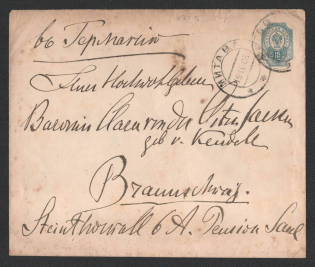 въ Германiю
МИТАВА
Ihrer Hochwohlgeboren
Baronin Clara von der Osten Sacken
geb v. Keudell
Braunschweig.
Steinthorwall 6 A. Pension